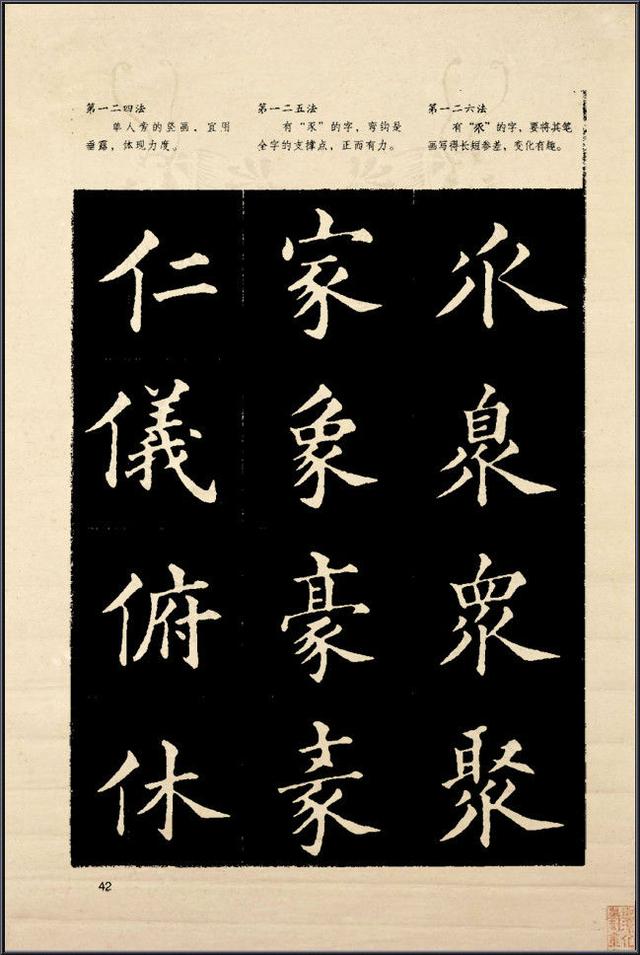 第一二四法
单人旁的竖画，宜用
垂露，体现力度。
第一二五法
有“豕”的字，弯钩是
全字的支撑点，正而有力。
第一二六法
有“乑”的字，要将其笔
画写得长短参差，变化有趣。
仁
儀
俯
休
家
象
豪
乑
臮
衆
聚
42